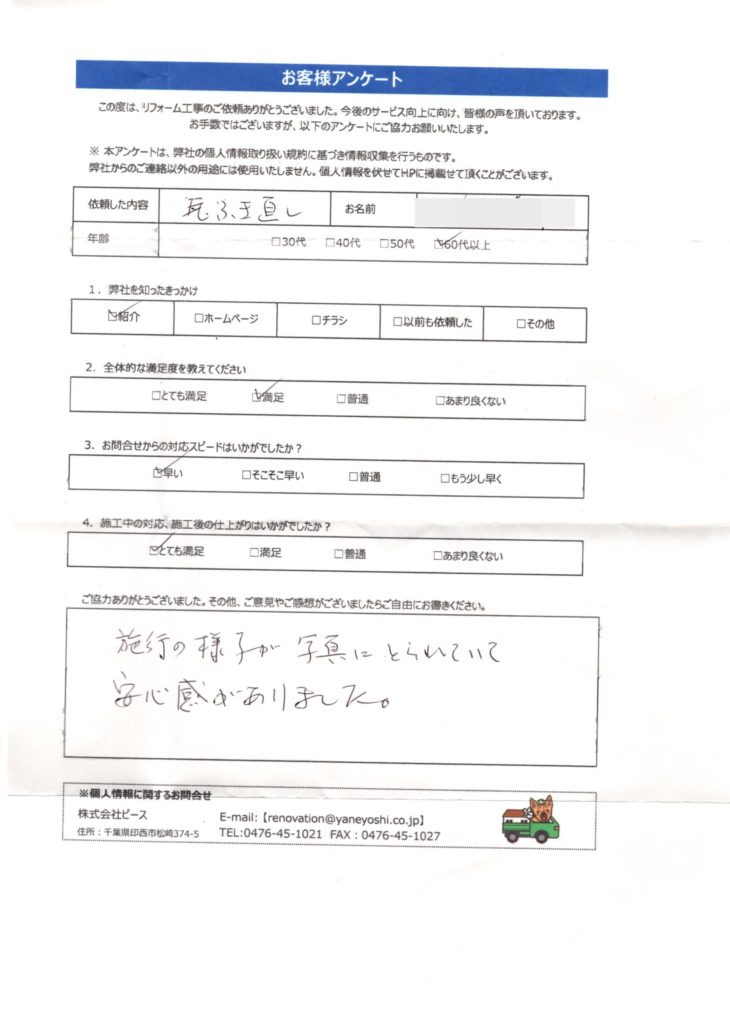 お客様アンケート
この度は、リフォーム工事のご依頼ありがとうございました。今後のサービス向上に向け、皆様の声を頂いております。
お手数ではございますが、以下のアンケートにご協力お願いいたします。
※ 本アンケートは、弊社の個人情報取り扱い規約に基づき情報収集を行うものです。
弊社からのご連絡以外の用途には使用いたしません。個人情報を伏せてHPに掲載せて頂くことがございます。
依頼した内容 瓦ふき直し お名前
年齢 □30代 □40代 □50代 ☑60代以上
1．弊社を知ったきっかけ
☑紹介 □ホームページ □チラシ □以前も依頼した □その他
2．全体的な満足度を教えてください
□とても満足 ☑満足 □普通 □あまり良くない
3．お問合せからの対応スピードはいかがでしたか？
☑早い □そこそこ早い □普通 □もう少し早く
4．施工中の対応、施工後の仕上がりはいかがでしたか？
☑とても満足 □満足 □普通 □あまり良くない
ご協力ありがとうございました。その他、ご意見やご感想がございましたらご自由にお書きください。
施行の様子が写真にとられていて
安心感がありました。
※個人情報に関するお問合せ
株式会社ピース E-mail:【renovation@yaneyoshi.co.jp】
住所：千葉県印西市松崎374-5 TEL:0476-45-1021 FAX：0476-45-1027